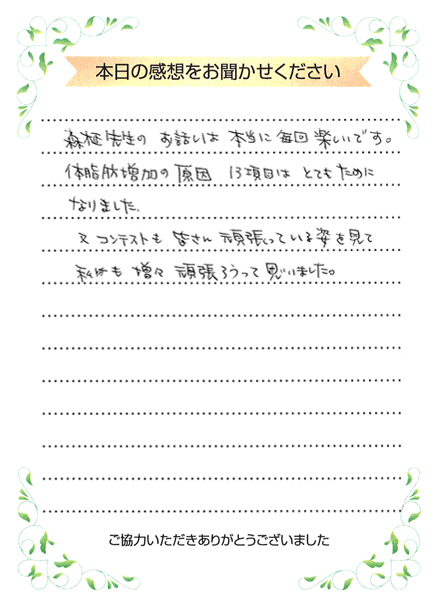 本日の感想をお聞かせください
森柾先生の お話しは 本当に 毎回 楽しいです。
体脂肪増加の 原因 13項目は とてもために
なりました。
又 コンテストも 皆さん 頑張っている姿を見て
私も 増々 頑張ろうって思いました。
ご協力いただきありがとうございました